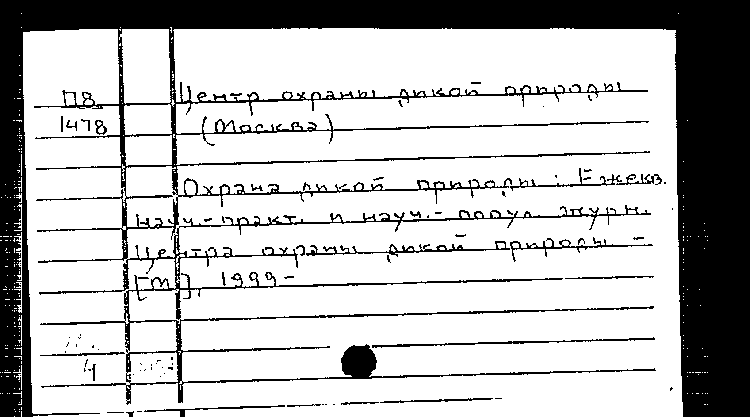 П8 Центр охраны дикой природы
1478 (Москва)
Охрана дикой природы : Ежекв.
науч.-практ. и науч.-попул. журн.
Центра охраны дикой природы –
[М], 1999–
4